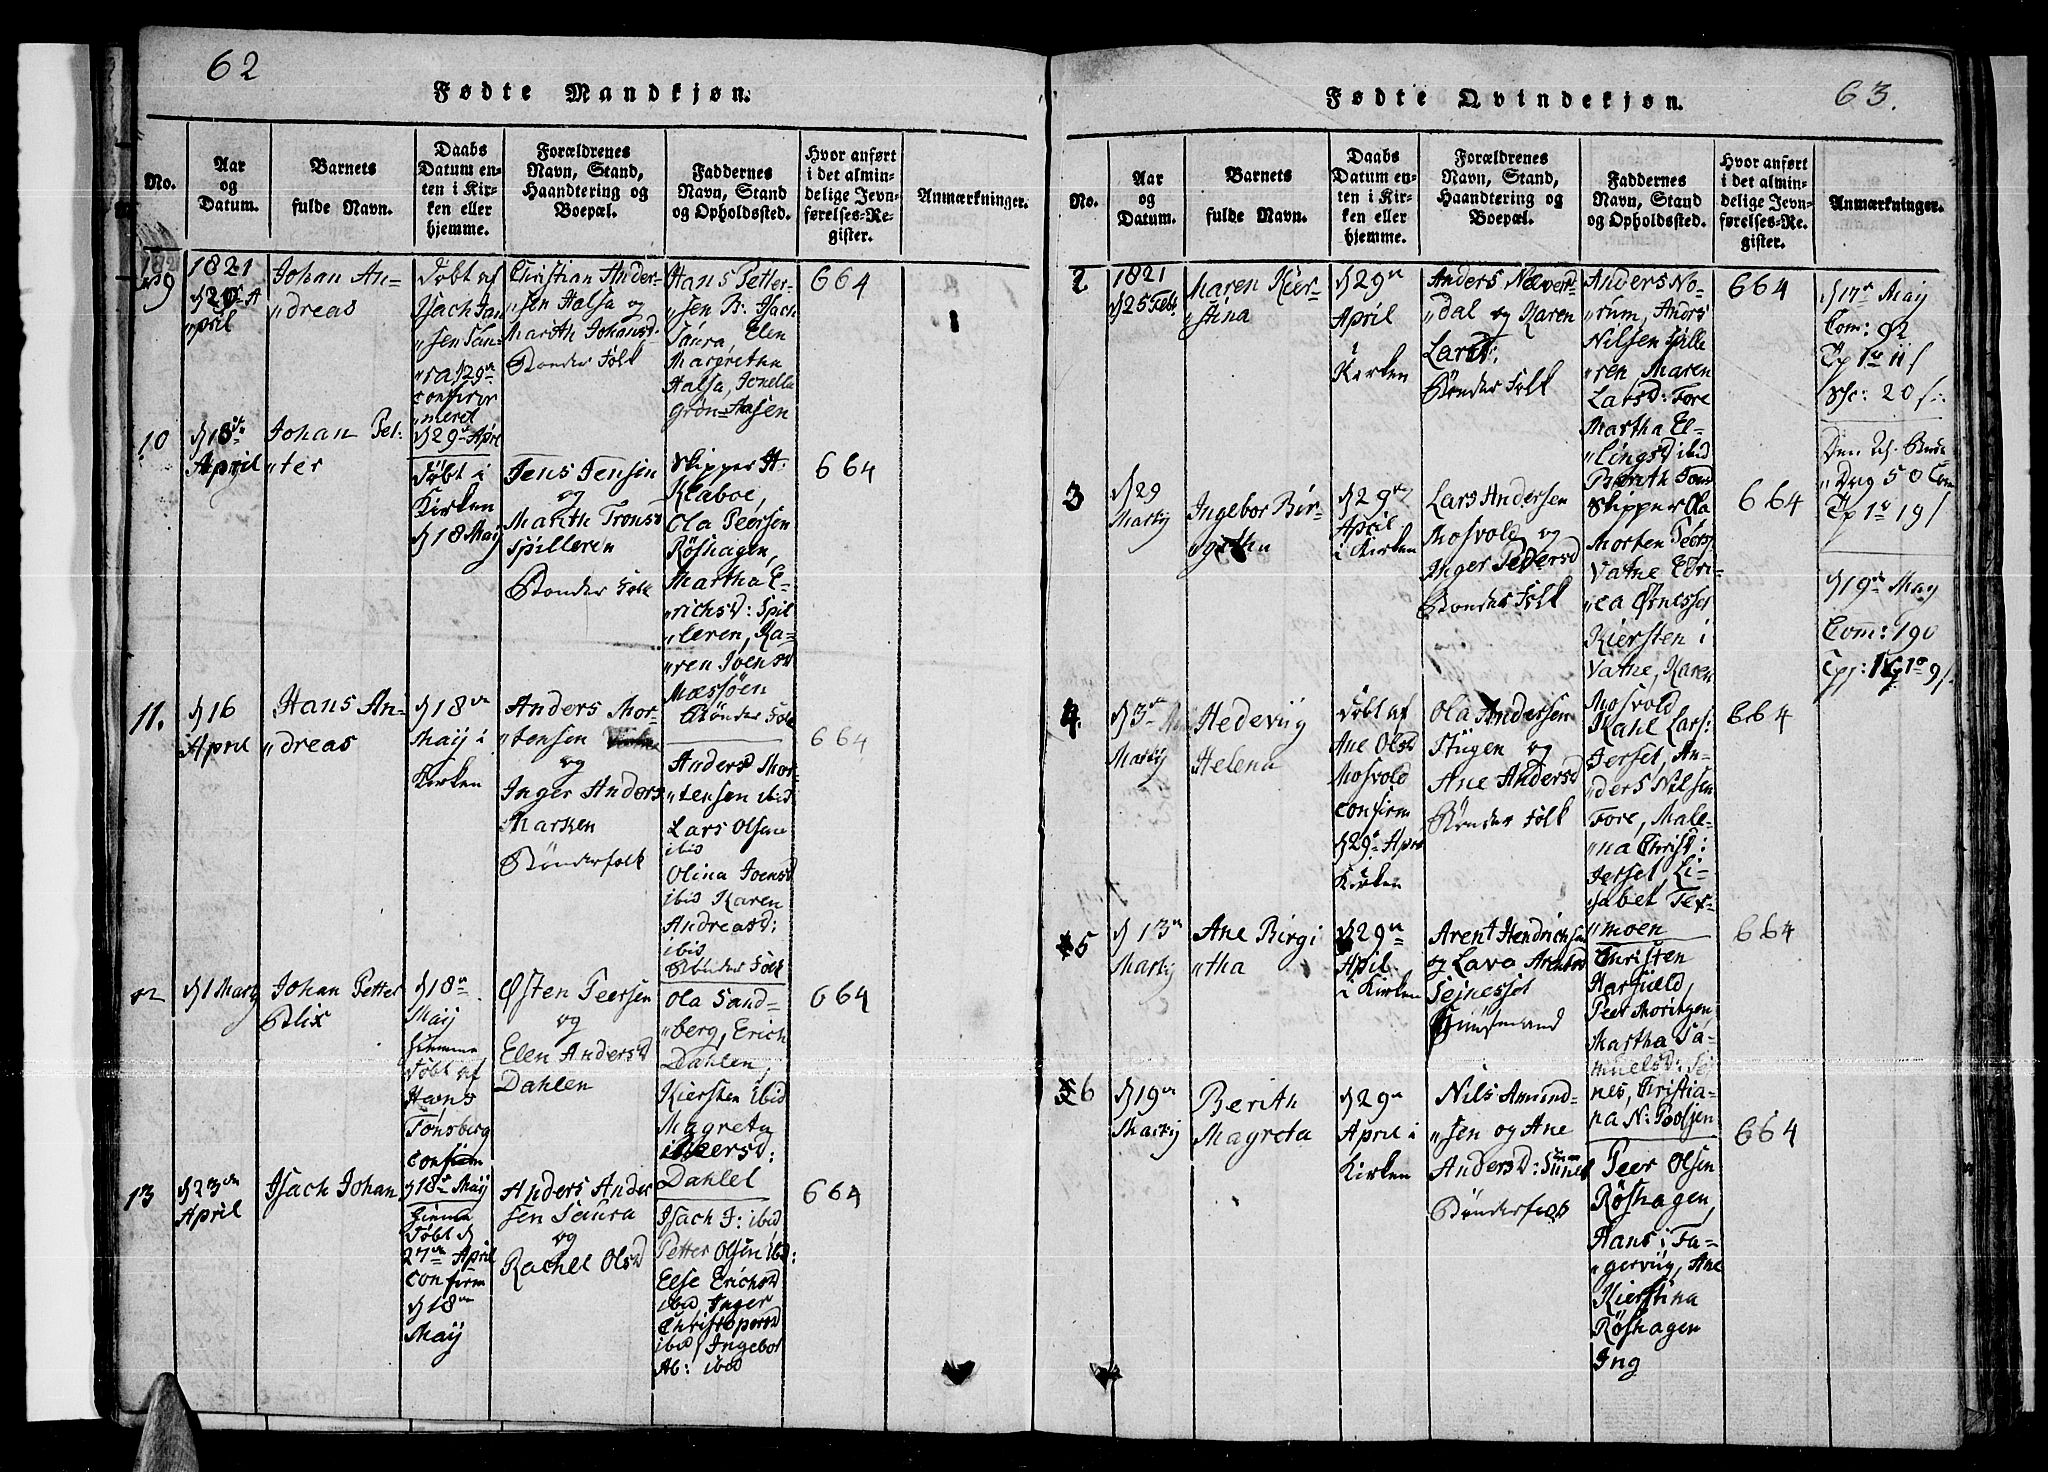 62
Fødte Mandkjøn.
No.
Aar
og
Datum.
Barnets
fulde Navn.
Daabs
Datum en-
ten i Kir-
ken eller
hjemme.
Forældrenes
Navn, Stand,
Haandtering og
Boepæl.
Faddernes
Navn, Stand
og Opholdssted.
Hvor anført
i det almin-
delige Jevn-
førelses-Re-
gister.
Anmærkninger.
9
1821
April
Johan An-
"dreas
Døbt af
Jsach Jan
"sen Sau-
"ra, 29de
confir
"meret
29 April
Christian Ander-
"sen Halsa og
Marith Johansd
Bønder Folk
Hans Petter-
"sen B: Jsach
Saura, Elen
Margretha
Halsa, Jonella
Grøn=Aasen
664
10
April
Johan Pet:
"ter
Døbt i
Kirken
d 18 Maij
Jens Jensen
og
Marith Tronsd
Spilleren
Bønder Folk
Skipper H:
Klaboe,
Ola Peersen
Røshagen,
Martha E-
"richsd: Spil
"leren, Ka-
"ren Joensd
Mæssøen
Bønder Folk
664
11.
d 16
April
Hans An-
"dreas
d 18de
Maij i
Kirken
Anders Mor-
"tensen
og
Inger Anders
Marken
Bønderfolk
Anders Mor-
"tensen ibid
Lars Olsen
ibid
Olina Joensd
ibid Karen
Andreasd:
ibid
Bønder Folk
664
d 1 Martij
Johan Petter
Blix
d 18de
Maij
hjemme
døbt af
Hans
Tønsberg
confirm
d 18de Maij
Østen Peersen
og
Elen Andersd
Dahlen
Ola Sand-
"berg, Erich
Dahlen,
Kiersten ibid
Magreta
Peersd:
Dahlel
664
13
d 23de
April
Jsach Johan
hjemme
døbt d
27de April
confirm
d 18de
Maij
Anders Ander
sen Saura
og
Rachel Olsd
Jsach J: ibid
Petter Olsen ibid:
Else Erichsd
ibid Inger
Christopersd
ibid, Ingebor
Ab: ibid
664
63.
Fødte Qvindekjøn.
No.
Aar
og
Datum.
Barnets
fulde Navn.
Daabs
Datum en-
ten i Kir-
ken eller
hjemme.
Forældrenes
Navn, Stand,
Haandtering og
Boepæl.
Faddernes
Navn, Stand
og Opholdssted.
Hvor anført
i det almin-
delige Jevn-
førelses-Re-
gister.
Anmærkninger.
2
1821
d 25 Feb:
Maren Kier-
"stina
d 29de
April
i
Kirken
Anders Næver-
"dal og Karen
Larsd:
Bønder Folk
Anders No-
"rum, Anders
Nilsen
"ren Maren
Larsd: Fore
Martha El-
"lingsd ibid
Berith
664
d 17de Maij
Com: 92
1 11 s
20 s:
3
d 29
Martij
Ingebor Bir-
"githa
d 29de
April
i Kirken
Lars Andersen
Mosvold og
Inger Pedersd
Bønder Folk
Skipper Ola
Morten Peers
Vatne
"ea Ørnesset
Kiersten i
Vatne, Karen
Mosvold
664
Den
"Dag 50 Com
1 19 s
d 19de May
Com: 190
4.
d 3de
Martij
Hedeviig
Helena
Døbt af
Ane Olsd
Mosvold
confirm
d 29de April
i
Kirken
Ola Andersen
Stügen og
Ane Andersd
Bønder Folk
Kahl Lars:
Jerset, An-
"ders Nilsen
Fore, Male-
"na Christ:
Jerset, Li-
sabet Tex-
"moen
664
5
d 13de
Martij
Ane Birgi
"tha
d 29de
April
i Kirken
Arent Hendrichsen
og Lava Arentsd
Selnesset
Huusmand
Christen
Peer Moritzen
Martha Sa-
muelsd: Sel
nes, Christia-
na N: Bolsen
664
6
d 19de
Martij
Berith
Magreta
d 29de
April i
Kirken
Nils Amund-
"sen og Ane
Andersd:
Bønderfolk
Peer Olsen
Røshagen,
Hans i Fa-
"gerviig, Ane
Kierstina
Røshagen
Ing
664